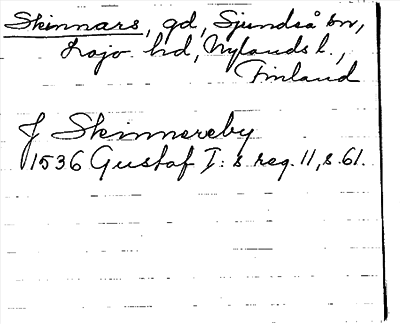 Skinnars, gd, Sjundså sn,
Lojo hd, Nylands l.,
Finland
J Skinnereby
1536 Gustaf I:s reg. 11, s. 61.